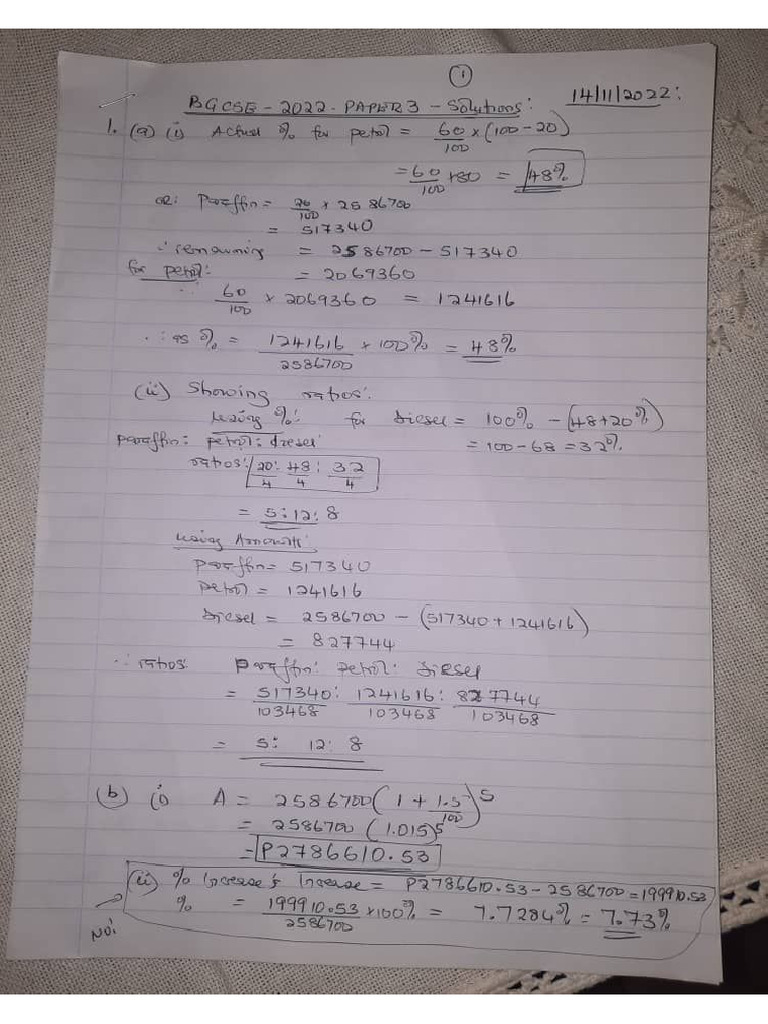 1
BGCSE - 2022. PAPER 3 - Solutions: 14/11/2022:
1. (a) (i) Actual % for petrol = 60/100 × (100 - 20)
= 60/100 × 80 = 48%
OR: Paraffin = 20/100 × 2586700
= 517340
∴ remaining = 2586700 - 517340
for petrol: = 2069360
∴ 60/100 × 2069360 = 1241616
∴ as % = 1241616/2586700 × 100% = 48%
(ii) Showing ratios:
Using %: for diesel = 100% - (48+20%)
paraffin: petrol: diesel = 100 - 68 = 32%
ratios: 20/4 : 48/4 : 32/4
= 5:12:8
Using Amounts:
paraffin = 517340
petrol = 1241616
diesel = 2586700 - (517340 + 1241616)
= 827744
∴ ratios: paraffin: petrol: diesel
= 517340/103468 : 1241616/103468 : 827744/103468
= 5: 12: 8
(b) (i) A = 2586700 (1 + 1.5/100)^5
= 2586700 (1.015)^5
= P2786610.53
(ii) % Increase: Increase = P2786610.53 - 2586700 = 199910.53
% = 199910.53/2586700 × 100% = 7.7284% = 7.73%
NO!